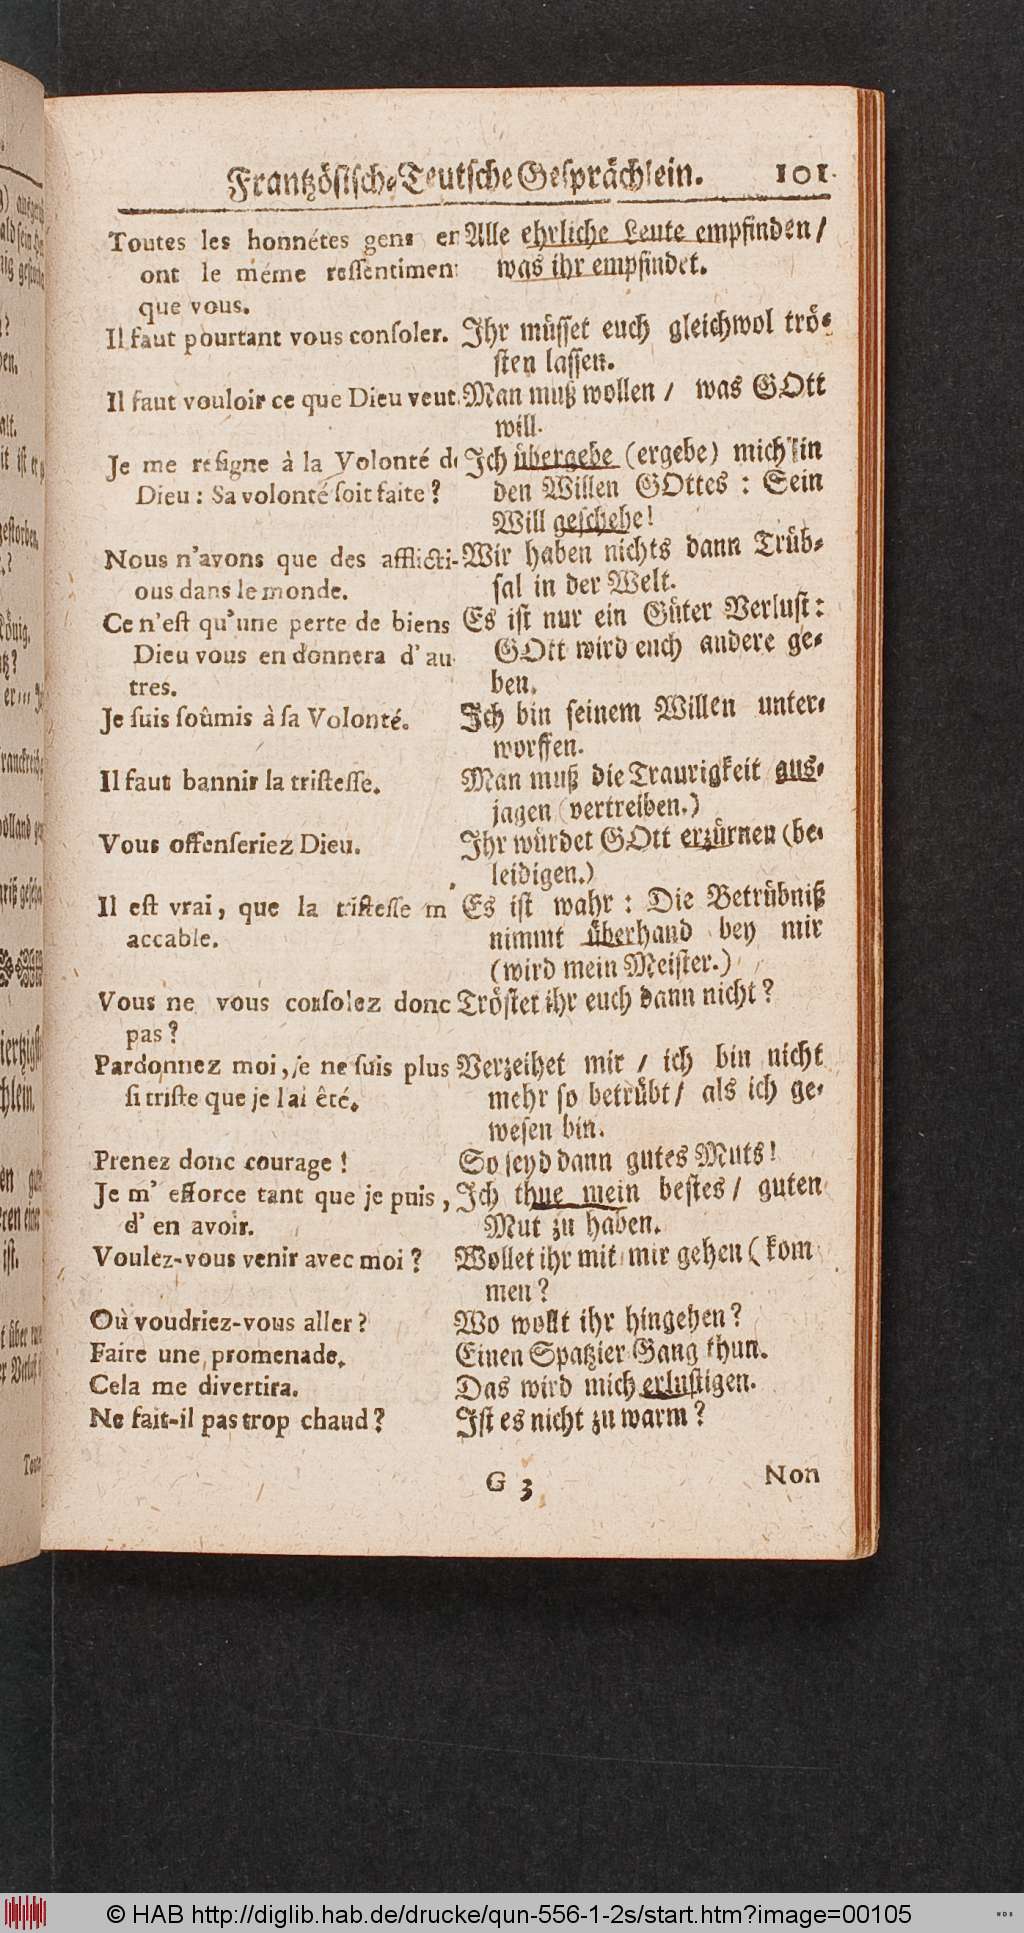 Frantzösisch-Teutsche Gesprächlein. 101.
Toutes les honnétes gens en
ont le méme ressentiment
que vous.
Il faut pourtant vous consoler.
Il faut vouloir ce que Dieu veut.
Je me resigne à la Volonté de
Dieu : Sa volonté soit faite ?
Nous n'avons que des afflicti-
ons dans le monde.
Ce n'est qu'une perte de biens
Dieu vous en donnera d'au
tres.
Je suis soûmis à sa Volonté.
Il faut bannir la tristesse.
Vous offenseriez Dieu.
Il est vrai, que la tristesse m
accable.
Vous ne vous consolez donc
pas ?
Pardonnez moi, je ne suis plus
si triste que je l'ai êté.
Prenez donc courage !
Je m' efforce tant que je puis,
d' en avoir.
Voulez-vous venir avec moi ?
Où voudriez-vous aller ?
Faire une promenade.
Cela me divertira.
Ne fait-il pas trop chaud ?
Alle ehrliche Leute empfinden /
was ihr empfindet.
Ihr müsset euch gleichwol trö-
sten lassen.
Man muß wollen / was GOtt
will.
Ich übergebe (ergebe) mich in
den Willen GOttes : Sein
Will geschehe !
Wir haben nichts dann Trüb-
sal in der Welt.
Es ist nur ein Güter Verlust :
GOtt wird euch andere ge-
ben.
Ich bin seinem Willen unter-
worffen.
Man muß die Traurigkeit aus-
jagen (vertreiben.)
Ihr würdet GOtt erzürnen (be-
leidigen.)
Es ist wahr : Die Betrübniß
nimmt überhand bey mir
(wird mein Meister.)
Tröstet ihr euch dann nicht ?
Verzeihet mir / ich bin nicht
mehr so betrübt / als ich ge-
wesen bin.
So seyd dann gutes Muts !
Ich thue mein bestes / guten
Mut zu haben.
Wollet ihr mit mir gehen (kom
men ?
Wo wollt ihr hingehen ?
Einen Spatzier-Gang thun.
Das wird mich erlustigen.
Ist es nicht zu warm ?
G 3 Non
© HAB http://diglib.hab.de/drucke/qun-556-1-2s/start.htm?image=00105